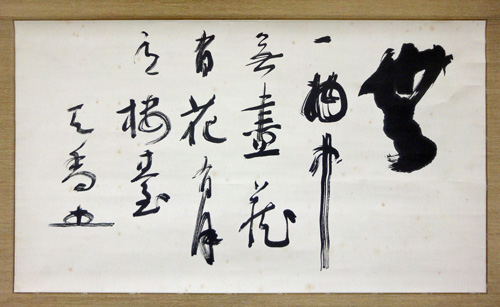 無
一物中
無盡蔵
有花有月
有楼臺
天香